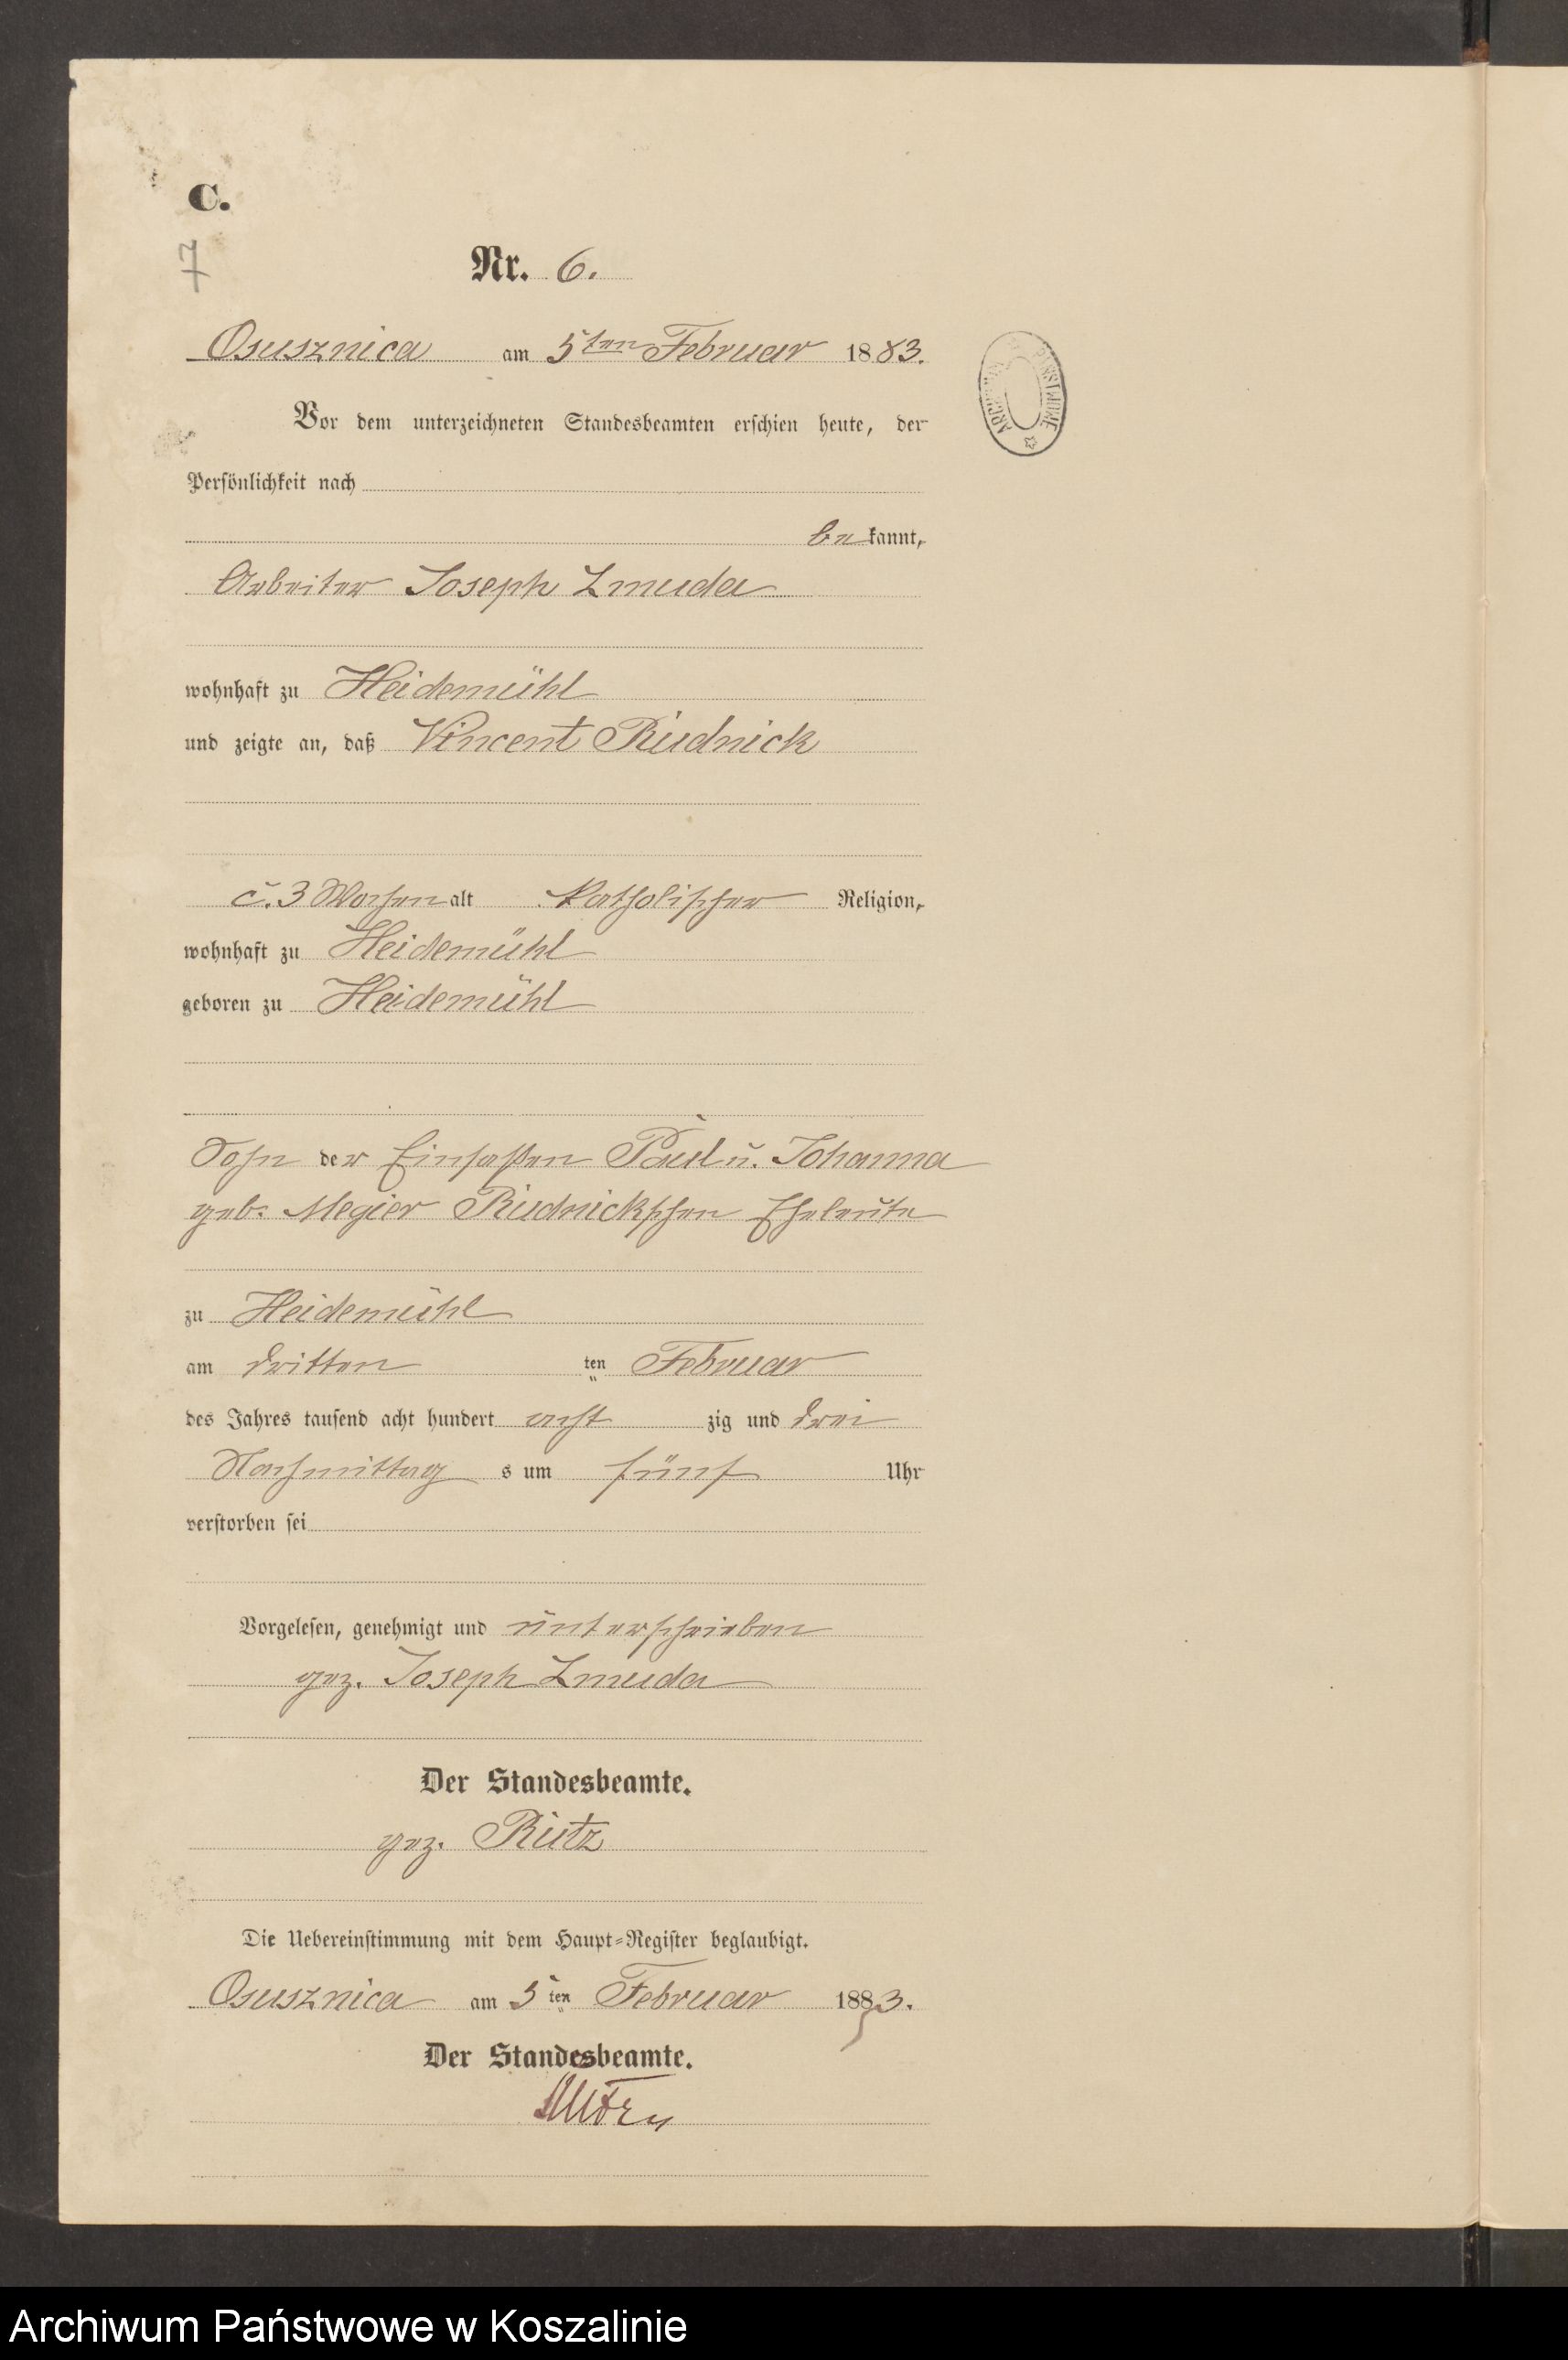 C.
7
Nr. 6.
Osusznica am 5ten Februar 1883.
Vor dem unterzeichneten Standesbeamten erschien heute, der
Persönlichkeit nach
bekannt,
Arbeiter Joseph Zmuda
wohnhaft zu Heidemühl
und zeigte an, daß Vincent Rudnick
c. 3 Wochen alt katholischer Religion,
wohnhaft zu Heidemühl
geboren zu Heidemühl
Sohn der Einsaßen Paul u. Johanna
geb. Megier Rudnickschen Eheleute
zu Heidemühl
am dritten ten Februar
des Jahres tausend acht hundert acht zig und drei
Nachmittag s um fünf Uhr
verstorben sei
Vorgelesen, genehmigt und unterschrieben
gez. Joseph Zmuda
Der Standesbeamte.
gez. Rutz
Die Uebereinstimmung mit dem Haupt-Register beglaubigt.
Osusznica am 5ten Februar 1883.
Der Standesbeamte.
Archiwum Państwowe w Koszalinie